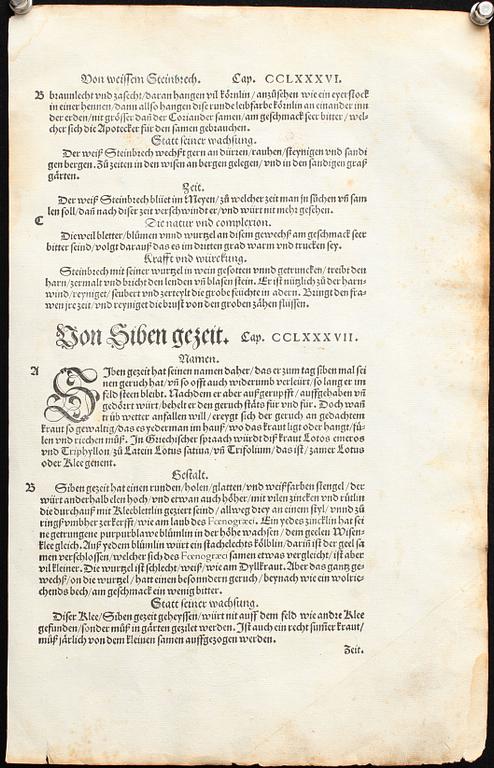 Von weissem Steinbrech. Cap. CCLXXXVI.
B braunlecht vnd zasecht/daran hangen vil körnlin/anzůsehen wie ein eyerstock
in einer hennen/dann allso hangen dise runde leibfarbe körnlin an einander inn
der erden/nit grösser dañ der Coriander samen/am geschmack seer bitter/wel-
cher sich die Apotecker für den samen gebrauchen.
Statt seiner wachsung.
Der weiß Steinbrech wechßt gern an dürren/rauhen/steynigen vnd sandi
gen bergen. Zů zeiten in den wisen an bergen gelegen/vnd in den sandigen graß
gärten.
Zeit.
Der weiß Steinbrech blüet im Meyen/zů welcher zeit man jn sůchen vñ sam
len soll/dañ nach diser zeit verschwindt er/vnd würt nit mehr gesehen.
C Die natur vnd complexion.
Dieweil bletter/blůmen vnnd wurtzel an disem gewechß am geschmack seer
bitter seind/volgt darauß das es im dritten grad warm vnd trucken sey.
Krafft vnd würckung.
Steinbrech mit seiner wurtzel in wein gesotten vnnd getruncken/treibt den
harn/zermalt vnd bricht den lenden vñ blasen stein. Er ist nützlich zů der harn-
wind/reyniget/seubert vnd zerteylt die grobe feüchte in adern. Bringt den fra-
wen jre zeit/vnd reyniget die brust von den groben zähen flüssen.
Von Siben gezeit. Cap. CCLXXXVII.
Namen.
A SIben gezeit hat seinen namen daher/das er zum tag siben mal sei
nen geruch hat/vñ so offt auch widerumb verleürt/so lang er im
feld steen bleibt. Nachdem er aber außgerupfft/auffgehaben vñ
gedörrt würt/behelt er den geruch stäts für vnd für. Doch wañ
trüb wetter anfallen will/ereygt sich der geruch an gedachtem
kraut so gewaltig/das es yederman im hauß/wo das kraut ligt oder hangt/fü-
len vnd riechen můß. In Griechischer spraach würdt diß kraut Lotos emeros
vnd Triphyllon/zů Latein Lotus satiua/vñ Trifolium/das ist/zamer Lotus
oder Klee genent.
Gestalt.
B Siben gezeit hat einen runden/holen/glatten/vnd weißfarben stengel/der
würt anderhalb elen hoch/vnd etwan auch höher/mit vilen zincken vnd rütlin
die durchauß mit Kleeblettlin geziert seind/allweg drey an einem styl/vnnd zů
ringß vmbher zerkerfft/wie am laub des Fœnogræci. Ein yedes zincklin hat sei
ne getrungene purpurblawe blümlin in der höhe wachsen/dem geelen Wisen-
klee gleich. Auß yedem blümlin würt ein stachelechts kölblin/dariñ ist der geel sa
men verschlossen/welcher sich des Fœnogræci samen etwas vergleicht/ist aber
vil kleiner. Die wurtzel ist schlecht/weiß/wie am Dyllkraut. Aber das gantz ge-
wechß/on die wurtzel/hatt einen besonndern geruch/beynach wie ein wolrie-
chends bech/am geschmack ein wenig bitter.
Statt seiner wachsung.
Diser Klee/Siben gezeit geheyssen/würt nit auff dem feld wie andre Klee
gefunden/sonder můß in gärten gezilet werden. Ist auch ein recht sum̃er kraut/
můß järlich von dem kleinen samen auffgezogen werden.
Zeit.